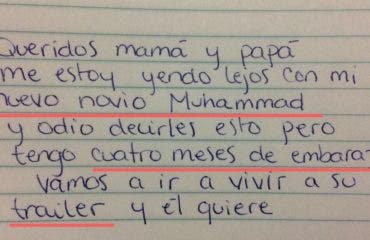 Queridos mamá y papá
me estoy yendo lejos con mi
nuevo novio Muhammad
y odio decirles esto pero
tengo cuatro meses de embara
vamos a ir a vivir a su
trailer y él quiere